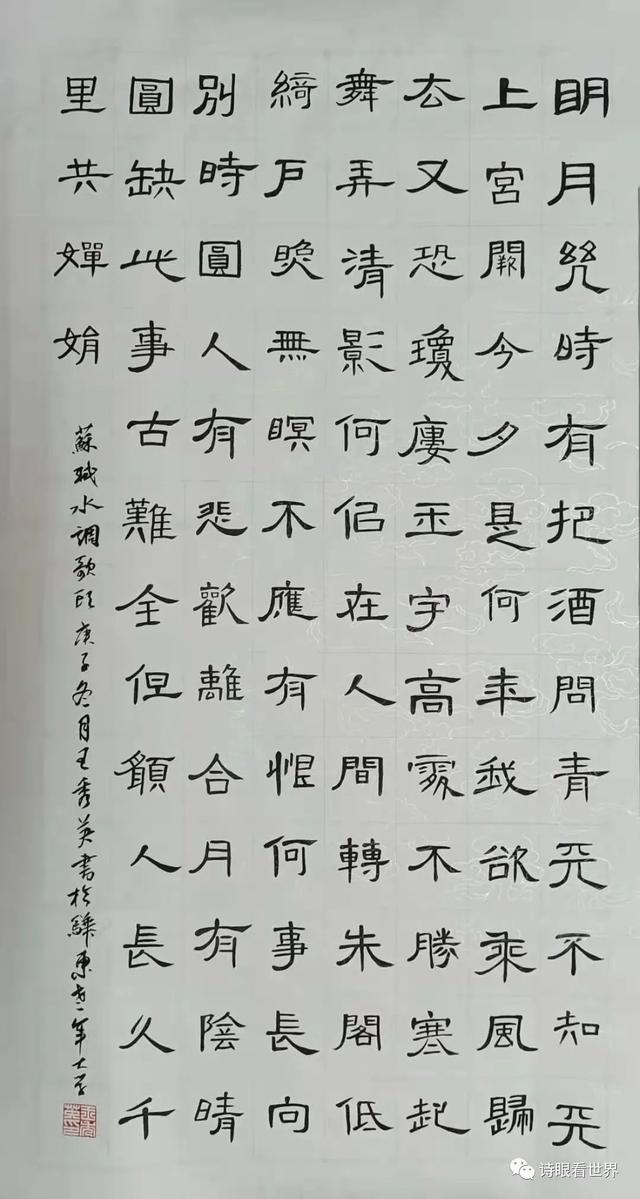 明月幾時有把酒問青天不知天
上宮闕今夕是何年我欲乘風歸
去又恐瓊廔玉宇高處不勝寒起
舞弄清影何佀在人間轉朱閣低
綺戶晚無瞑不應有恨何事長向
別時圓人有悲歡離合月有陰晴
圓缺此事古難全但願人長久千
里共嬋娟
蘇軾水調歌頭庚子冬月王秀英書於東老年大学
诗眼看世界